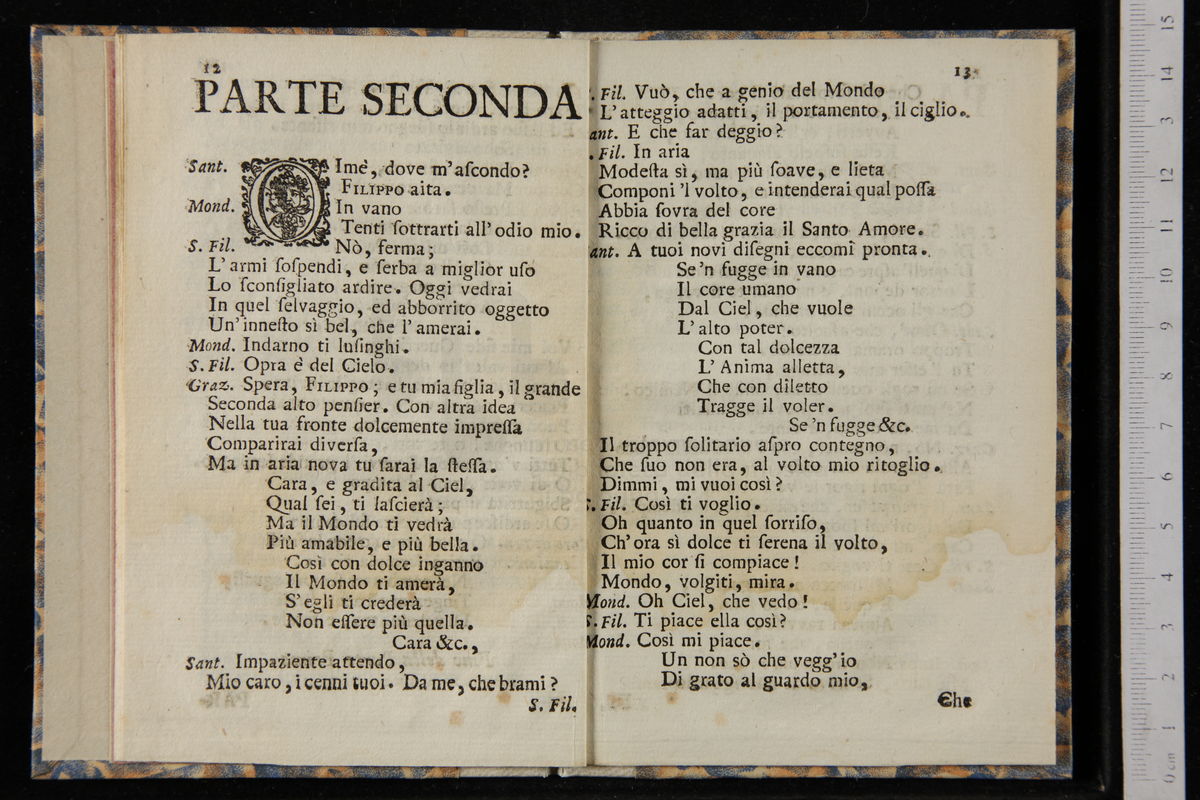 12
PARTE SECONDA
Sant. OImè, dove m'aſcondo?
FILIPPO aita.
Mond. In vano
Tenti ſottrarti all'odio mio.
S. Fil. Nò, ferma;
L'armi ſoſpendi, e ſerba a miglior uſo
Lo ſconſigliato ardire. Oggi vedrai
In quel ſelvaggio, ed abborrito oggetto
Un'inneſto sì bel, che l'amerai.
Mond. Indarno ti luſinghi.
S. Fil. Opra è del Cielo.
Graz. Spera, FILIPPO; e tu mia figlia, il grande
Seconda alto penſier. Con altra idea
Nella tua fronte dolcemente impreſſa
Comparirai diverſa,
Ma in aria nova tu ſarai la ſteſſa.
Cara, e gradita al Ciel,
Qual ſei, ti laſcierà;
Ma il Mondo ti vedrà
Più amabile, e più bella.
Così con dolce inganno
Il Mondo ti amerà,
S'egli ti crederà
Non eſſere più quella.
Cara &c.,
Sant. Impaziente attendo,
Mio caro, i cenni tuoi. Da me, che brami?
S. Fil.
13
. Fil. Vuò, che a genio del Mondo
L'atteggio adatti, il portamento, il ciglio.
ant. E che far deggio?
. Fil. In aria
Modeſta sì, ma più ſoave, e lieta
Componi 'l volto, e intenderai qual poſſa
Abbia ſovra del core
Ricco di bella grazia il Santo Amore.
ant. A tuoi novi diſegni eccomi pronta.
Se'n fugge in vano
Il core umano
Dal Ciel, che vuole
L'alto poter.
Con tal dolcezza
L'Anima alletta,
Che con diletto
Tragge il voler.
Se'n fugge &c.
Il troppo ſolitario aſpro contegno,
Che ſuo non era, al volto mio ritoglio.
Dimmi, mi vuoi così?
S. Fil. Così ti voglio.
Oh quanto in quel ſorriſo,
Ch'ora sì dolce ti ſerena il volto,
Il mio cor ſi compiace!
Mondo, volgiti, mira.
Mond. Oh Ciel, che vedo!
S. Fil. Ti piace ella così?
Mond. Così mi piace.
Un non sò che vegg'io
Di grato al guardo mio,
Che
0 cm 1 2 3 4 5 6 7 8 9 10 11 12 13 14 15